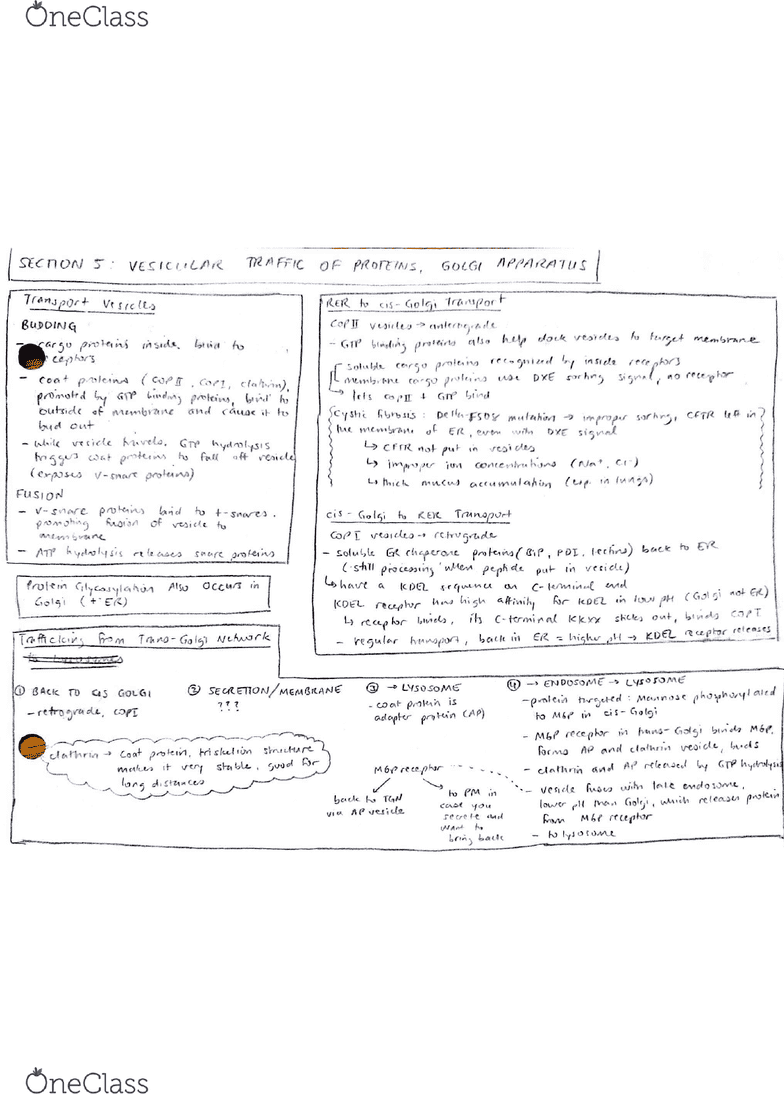 OneClass
SECTION 5: VESICULAR TRAFFIC OF PROTEINS, GOLGI APPARATUS
Transport Vesicles
BUDDING
- cargo proteins inside bind to
receptors
- coat proteins (COP II, COP I, clathrin),
promoted by GTP binding proteins, bind to
outside of membrane and cause it to
bud out
- while vesicle travels, GTP hydrolysis
triggers coat proteins to fall off vesicle
(exposes v-snare proteins)
FUSION
- v-snare proteins bind to t-snares,
promoting fusion of vesicle to
membrane
- ATP hydrolysis releases snare proteins
Protein Glycosylation Also Occurs in
Golgi (+ ER)
RER to cis-Golgi Transport
COP II vesicles → anterograde
- GTP binding proteins also help dock vesicles to target membrane
soluble cargo proteins recognized by inside receptors
membrane cargo proteins use DXE sorting signal, no receptor
↳ lets COP II + GTP bind
Cystic fibrosis: Delta-F508 mutation → improper sorting, CFTR left in
the membrane of ER, even with DXE signal
↳ CFTR not put in vesicles
↳ improper ion concentrations (Na+, Cl-)
↳ thick mucus accumulation (esp. in lungs)
cis-Golgi to RER Transport
COP I vesicles → retrograde
- soluble ER chaperone proteins (BiP, PDI, lectins) back to ER
(still processing when peptide put in vesicle)
↳ have a KDEL sequence on C-terminal and
KDEL receptor has high affinity for KDEL in low pH (Golgi not ER)
↳ receptor binds, its C-terminal KKXX sticks out, binds COP I
- regular transport, back in ER = higher pH → KDEL receptor releases
Trafficking from Trans-Golgi Network
① BACK TO CIS GOLGI
- retrograde, COP I
② SECRETION/MEMBRANE
???
③ → LYSOSOME
- coat protein is
adapter protein (AP)
④ → ENDOSOME → LYSOSOME
- protein targeted: Mannose phosphorylated
to M6P in cis-Golgi
- M6P receptor in trans-Golgi binds M6P,
forms AP and clathrin vesicle, buds
- clathrin and AP released by GTP hydrolysis
- vesicle fuses with late endosome,
lower pH than Golgi, which releases protein
from M6P receptor
- to lysosome
clathrin → coat protein, triskelion structure
makes it very stable, good for
long distances
M6P receptor
back to TGN
via AP vesicle
to PM in
case you
secrete and
want to
bring back
OneClass